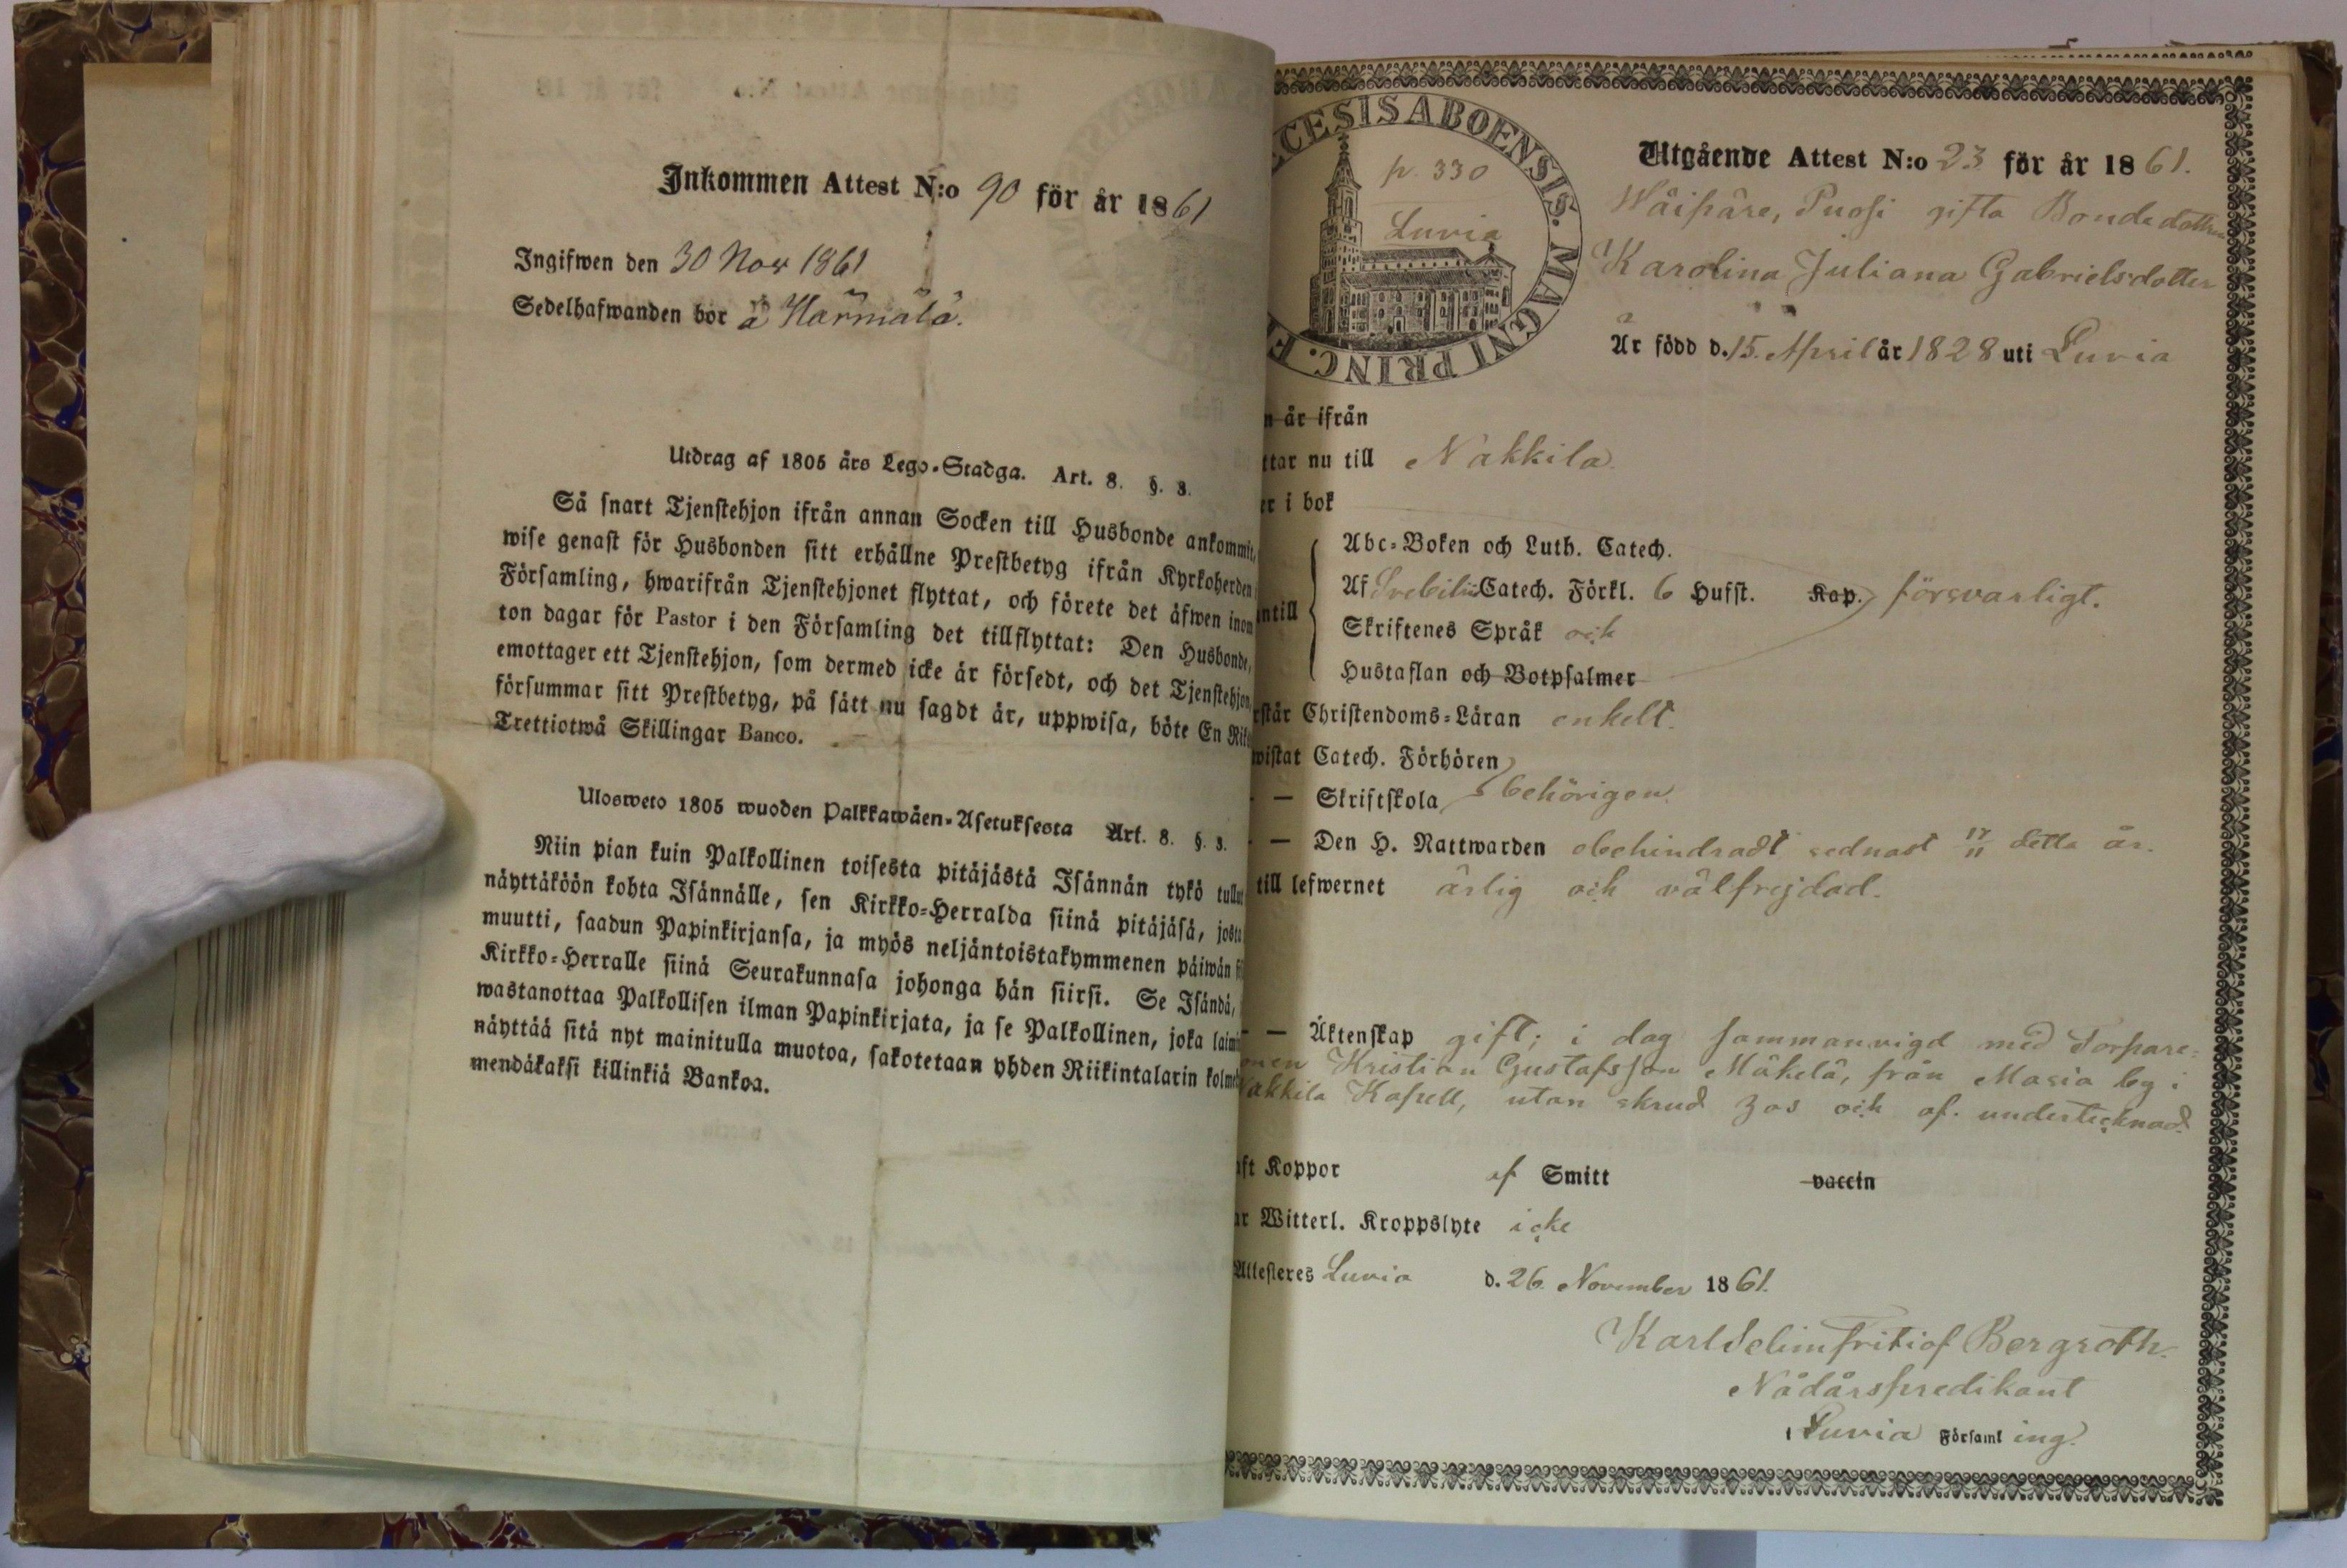 Inkommen Attest N:o 90 för år 1861
Ingifwen den 30 Nov 1861
Sedelhafwanden bor å Härmälä.
Utdrag af 1805 års Lego-Stadga. Art. 8. §. 3.
Så snart Tjenstehjon ifrån annan Socken till Husbonde ankommit,
wise genast för Husbonden sitt erhållne Prestbetyg ifrån Kyrkoherden
Församling, hwarifrån Tjenstehjonet flyttat, och förete det äfwen inom
ton dagar för Pastor i den Församling det tillflyttat: Den Husbonde,
emottager ett Tjenstehjon, som dermed icke är försedt, och det Tjenstehjon,
försummar sitt Prestbetyg, på sätt nu sagdt är, uppwisa, böte En Riks
Trettiotwå Skillingar Banco.
Ulosweto 1805 wuoden Palkkawäen-Asetuksesta Art. 8. §. 3.
Niin pian kuin Palkollinen toisesta pitäjästä Isännän tykö tullut
näyttäköön kohta Isännälle, sen Kirkko-Herralda siinä pitäjäsä, josta
muutti, saadun Papinkirjansa, ja myös neljäntoistakymmenen päiwän si
Kirkko-Herralle siinä Seurakunnasa johonga hän siirsi. Se Isändä,
wastanottaa Palkollisen ilman Papinkirjata, ja se Palkollinen, joka laimi
näyttää sitä nyt mainitulla muotoa, sakotetaan yhden Riikintalarin kolme
mendäkaksi killinkiä Bankoa.
CESIS ABOENSIS. MAGNI PRINC. F
p. 330
Luvia
Utgående Attest N:o 23 för år 1861.
Wäipäre, Puosi gifta Bondedottren
Karolina Juliana Gabrielsdotter
Är född d. 15. April år 1828 uti Luvia
n är ifrån
ttar nu till Nakkila.
er i bok
Abc-Boken och Luth. Catech.
ntill Af Svebilii Catech. Förkl. 6 Hufst. Kap. försvarligt.
Skriftenes Språk och
Hustaflan och Botpsalmer
rstår Christendoms-Läran enkelt.
wistat Catech. Förhören
— Skriftskola behörigen.
— Den H. Nattwarden obehindradt sednast 17/11 detta år.
till lefwernet ärlig och välfrejdad.
— Äktenskap gift; i dag sammanvigd med Torpare-
nen Kristian Gustafsson Mäkelä, från Masia by i
Nakkila Kapell, utan skrud hos och af undertecknad.
aft Koppor af Smitt vaccin
ar Witterl. Kroppslyte icke
Attesteres Luvia d. 26. November 1861.
Karl Selim Fritiof Bergroth.
Nådårspredikant
i Luvia Församling.